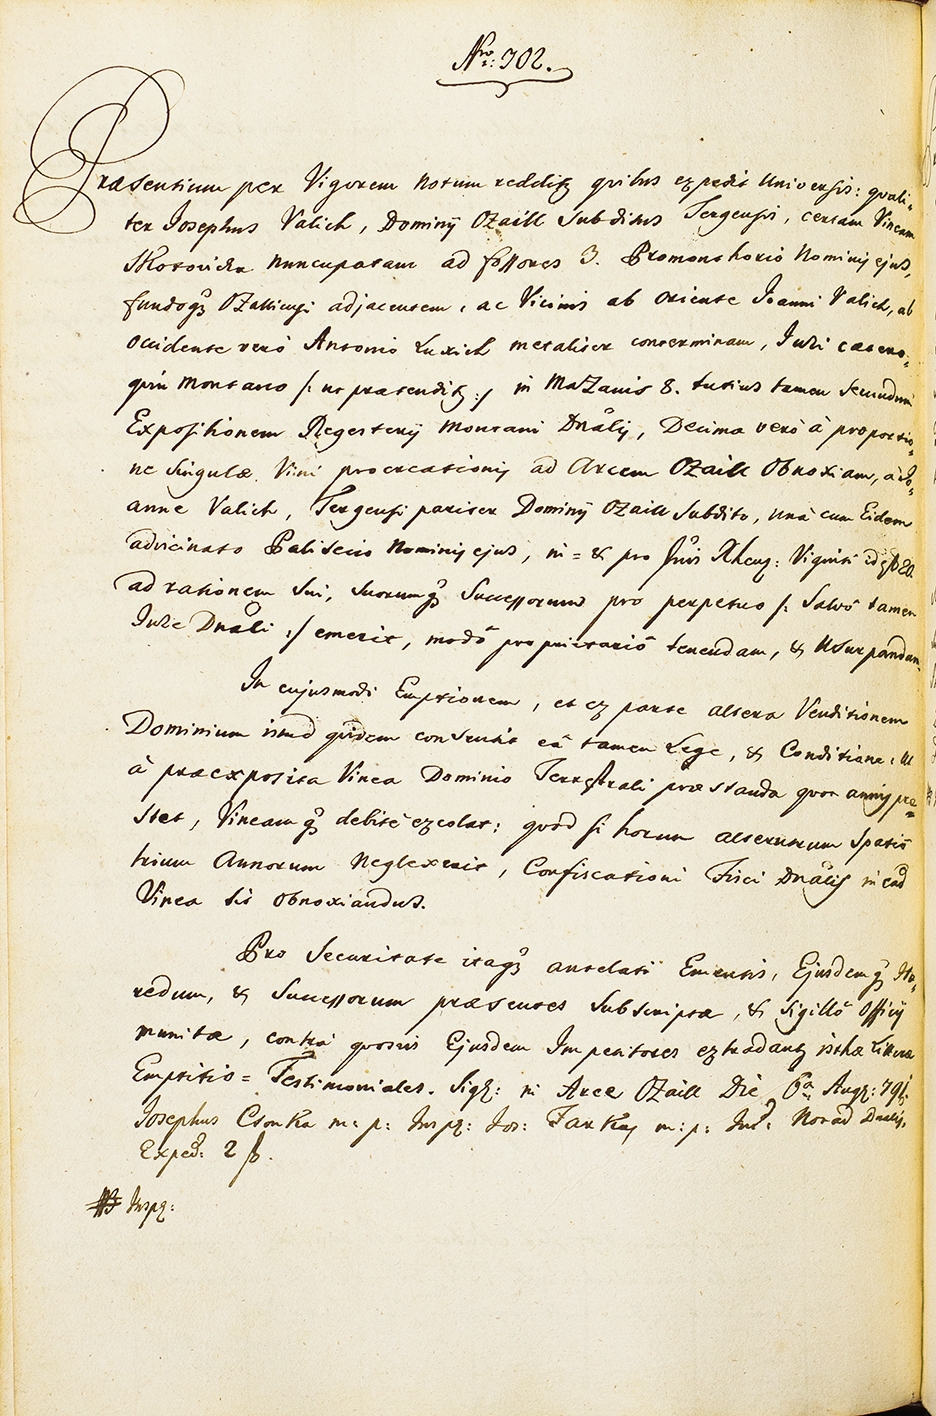 Nro: 302.
Præsentium per Vigorem notum redditq quibus expedit Universis: quali-
ter Josephus Valich, Dominÿ Ozaill Subditus Tergensis, certam Vineam
nuncupatam ad fossores 3. Promonthorio Nominis ejus,
fundoq3 Ozalliensi adjacentem, ac Vicinis ab oriente Joanni Valich, ab
occidente verò Antonio Luxich metaliter conterminam, Juri cætero-
quin montano /: ut prætenditq :/ in Mazanis 8. tutius tamen secundum
Expositionem Regesterÿ montani Dnalis, Decimæ verò à proportio-
ne singulæ Vini procreationis ad Arcem Ozaill Obnoxiam, à Jo-
anne Valich, Tergensi pariter Dominÿ Ozaill Subdito, unà cum Eidem
advicinato Paliscio Nominis ejus, in = & pro fnis Rhenq: Viginti id est f 20.
ad rationem sui, suorumq3 Successorum pro perpetuo /: Salvô tamen
Jure Dnali :/ emerit, modô proprietariô tenendam, & Usurpandam.
In cujusmodi Emptionem, et ex parte altera Venditionem
Dominium istud quidem consensit eâ tamen Lege, & Conditione: Ut
à præexposita Vinea Dominio Terrestrali præstanda quot annis præ-
stet, Vineamq3 debitè excolat: quod si horum alterutrum spatiô
trium Annorum neglexerit, Confiscationi Fisci Dnalis in ead
Vinea sit obnoxiandus.
Pro Securitate itaq3 antelati Ementis, Ejusdemq3 Hæ-
redum, & Successorum præsentes subscriptæ, & Sigillô Officÿ
munitæ, contra quosvis Ejusdem Impetitores extradantq isthæ Litteræ
Emptitio = Testimoniales. Sigq: in Arce Ozaill Die 6a Augq: 791.
Josephus Csonka m: p: Inspq: Jos: Farkas m: p: Jud: Norad Dnalis.
Exped: 2 f.
Inspq: